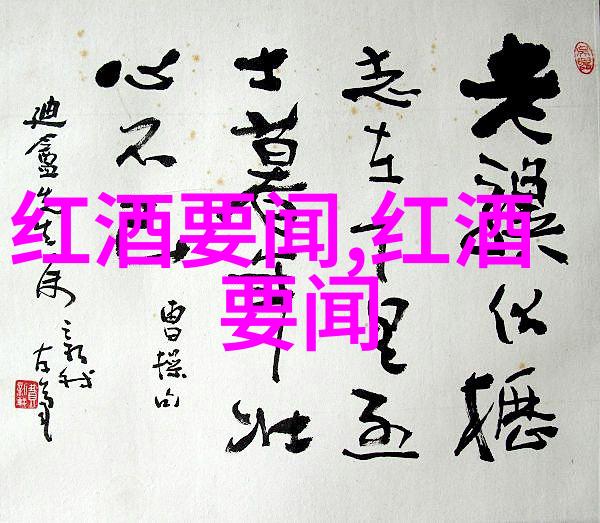 红酒要闻,红酒
要闻
老驥伏櫪
志在千里烈
士暮年壮
心不已
曹操句
迪盦先生属